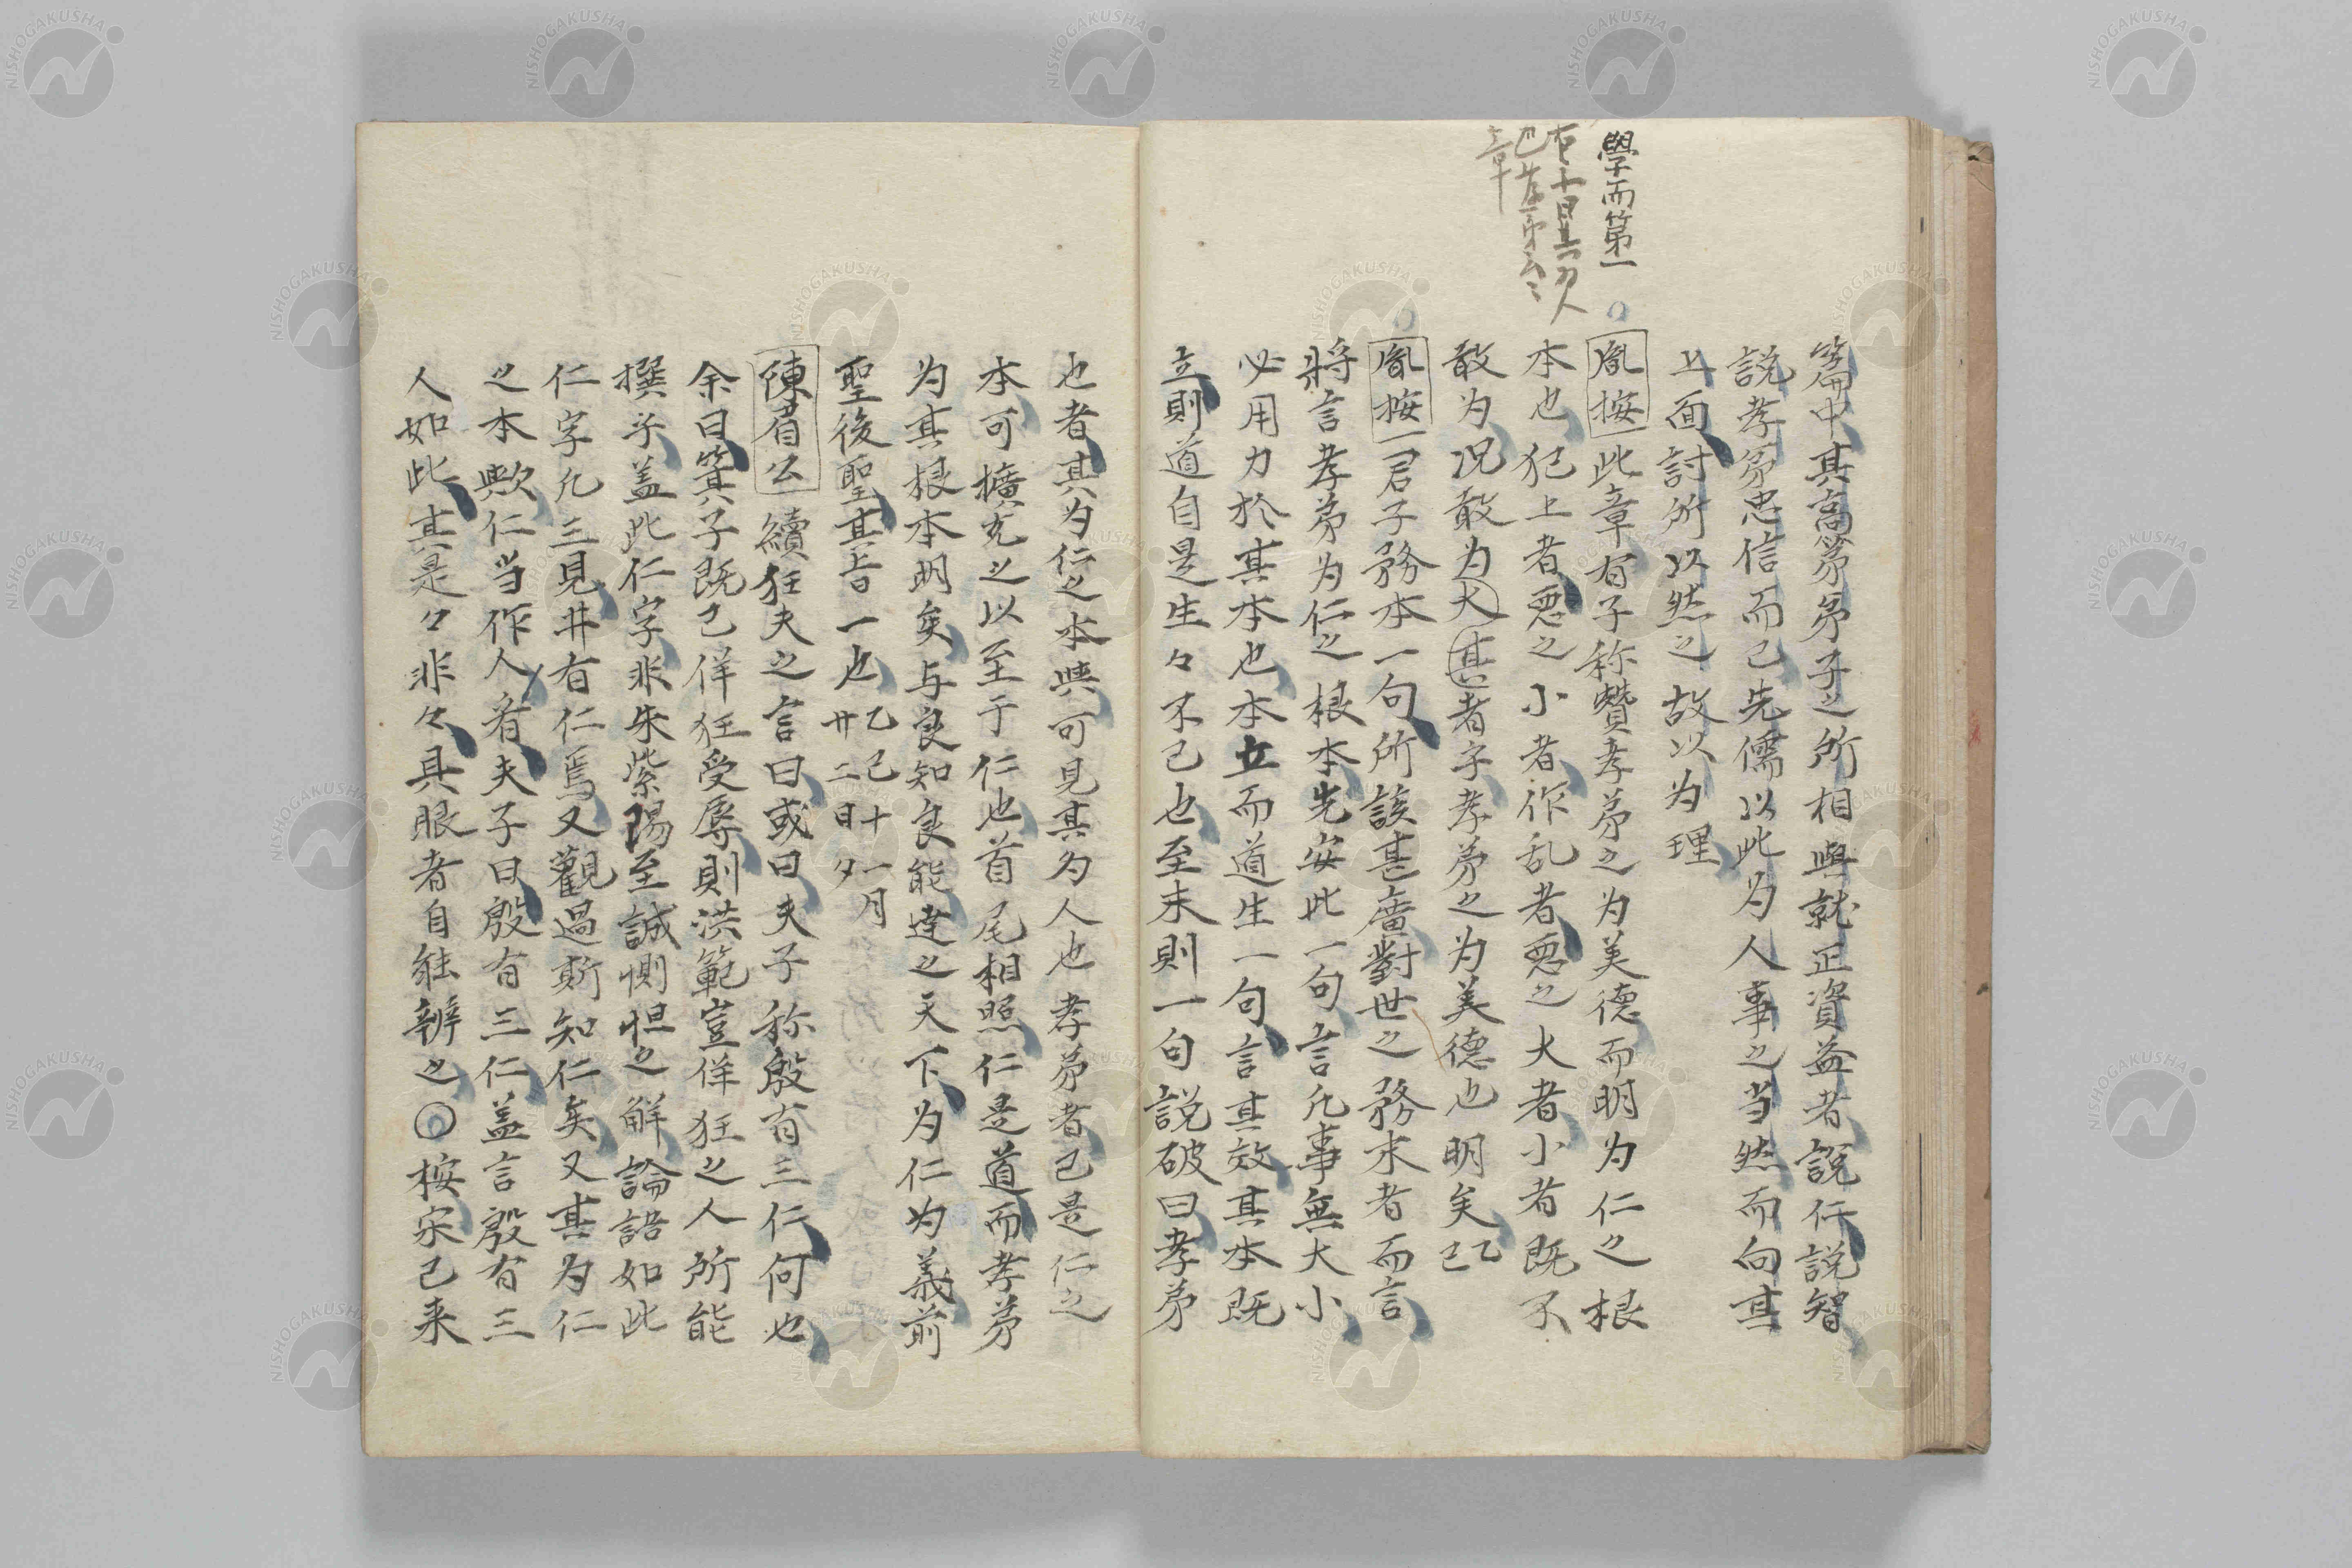 學而第一
篇中其高第弟子之所相與就正資益者說仁說智
説孝弟忠信而已先儒以此为人事之当然而向其
上面討所以然之故以为理
胤按此章有子称贊孝弟之为美德而明为仁之根
本也犯上者悪之小者作乱者悪之大者小者既不
敢为况敢为大其者字孝弟之为美德也明矣乙巳
胤按君子務本一句所該甚廣對世之務末者而言
將言孝弟为仁之根本先安此一句言凡事無大小
必用力於其本也本立而道生一句言其效其本既
立則道自是生々不已也至末則一句説破曰孝弟
也者其为仁之本與可見其为人也孝弟者已是仁之
本可擴充之以至于仁也首尾相照仁是道而孝弟
为其根本明矣与良知良能達之天下为仁为義前
聖後聖其旨一也乙巳十一月廿二日夕
陳眉公續狂夫之言曰或曰夫子称殷有三仁何也
余曰箕子既已佯狂受辱則洪範豈佯狂之人所能
撰乎盖此仁字非朱紫陽至誠惻怛之解論語如此
仁字凡三見井有仁焉又觀過斯知仁矣又其为仁
之本歟仁当作人看夫子曰殷有三仁盖言殷有三
人如此其是々非々具眼者自能辨之〇按宋已来
NISHOGAKUSHA